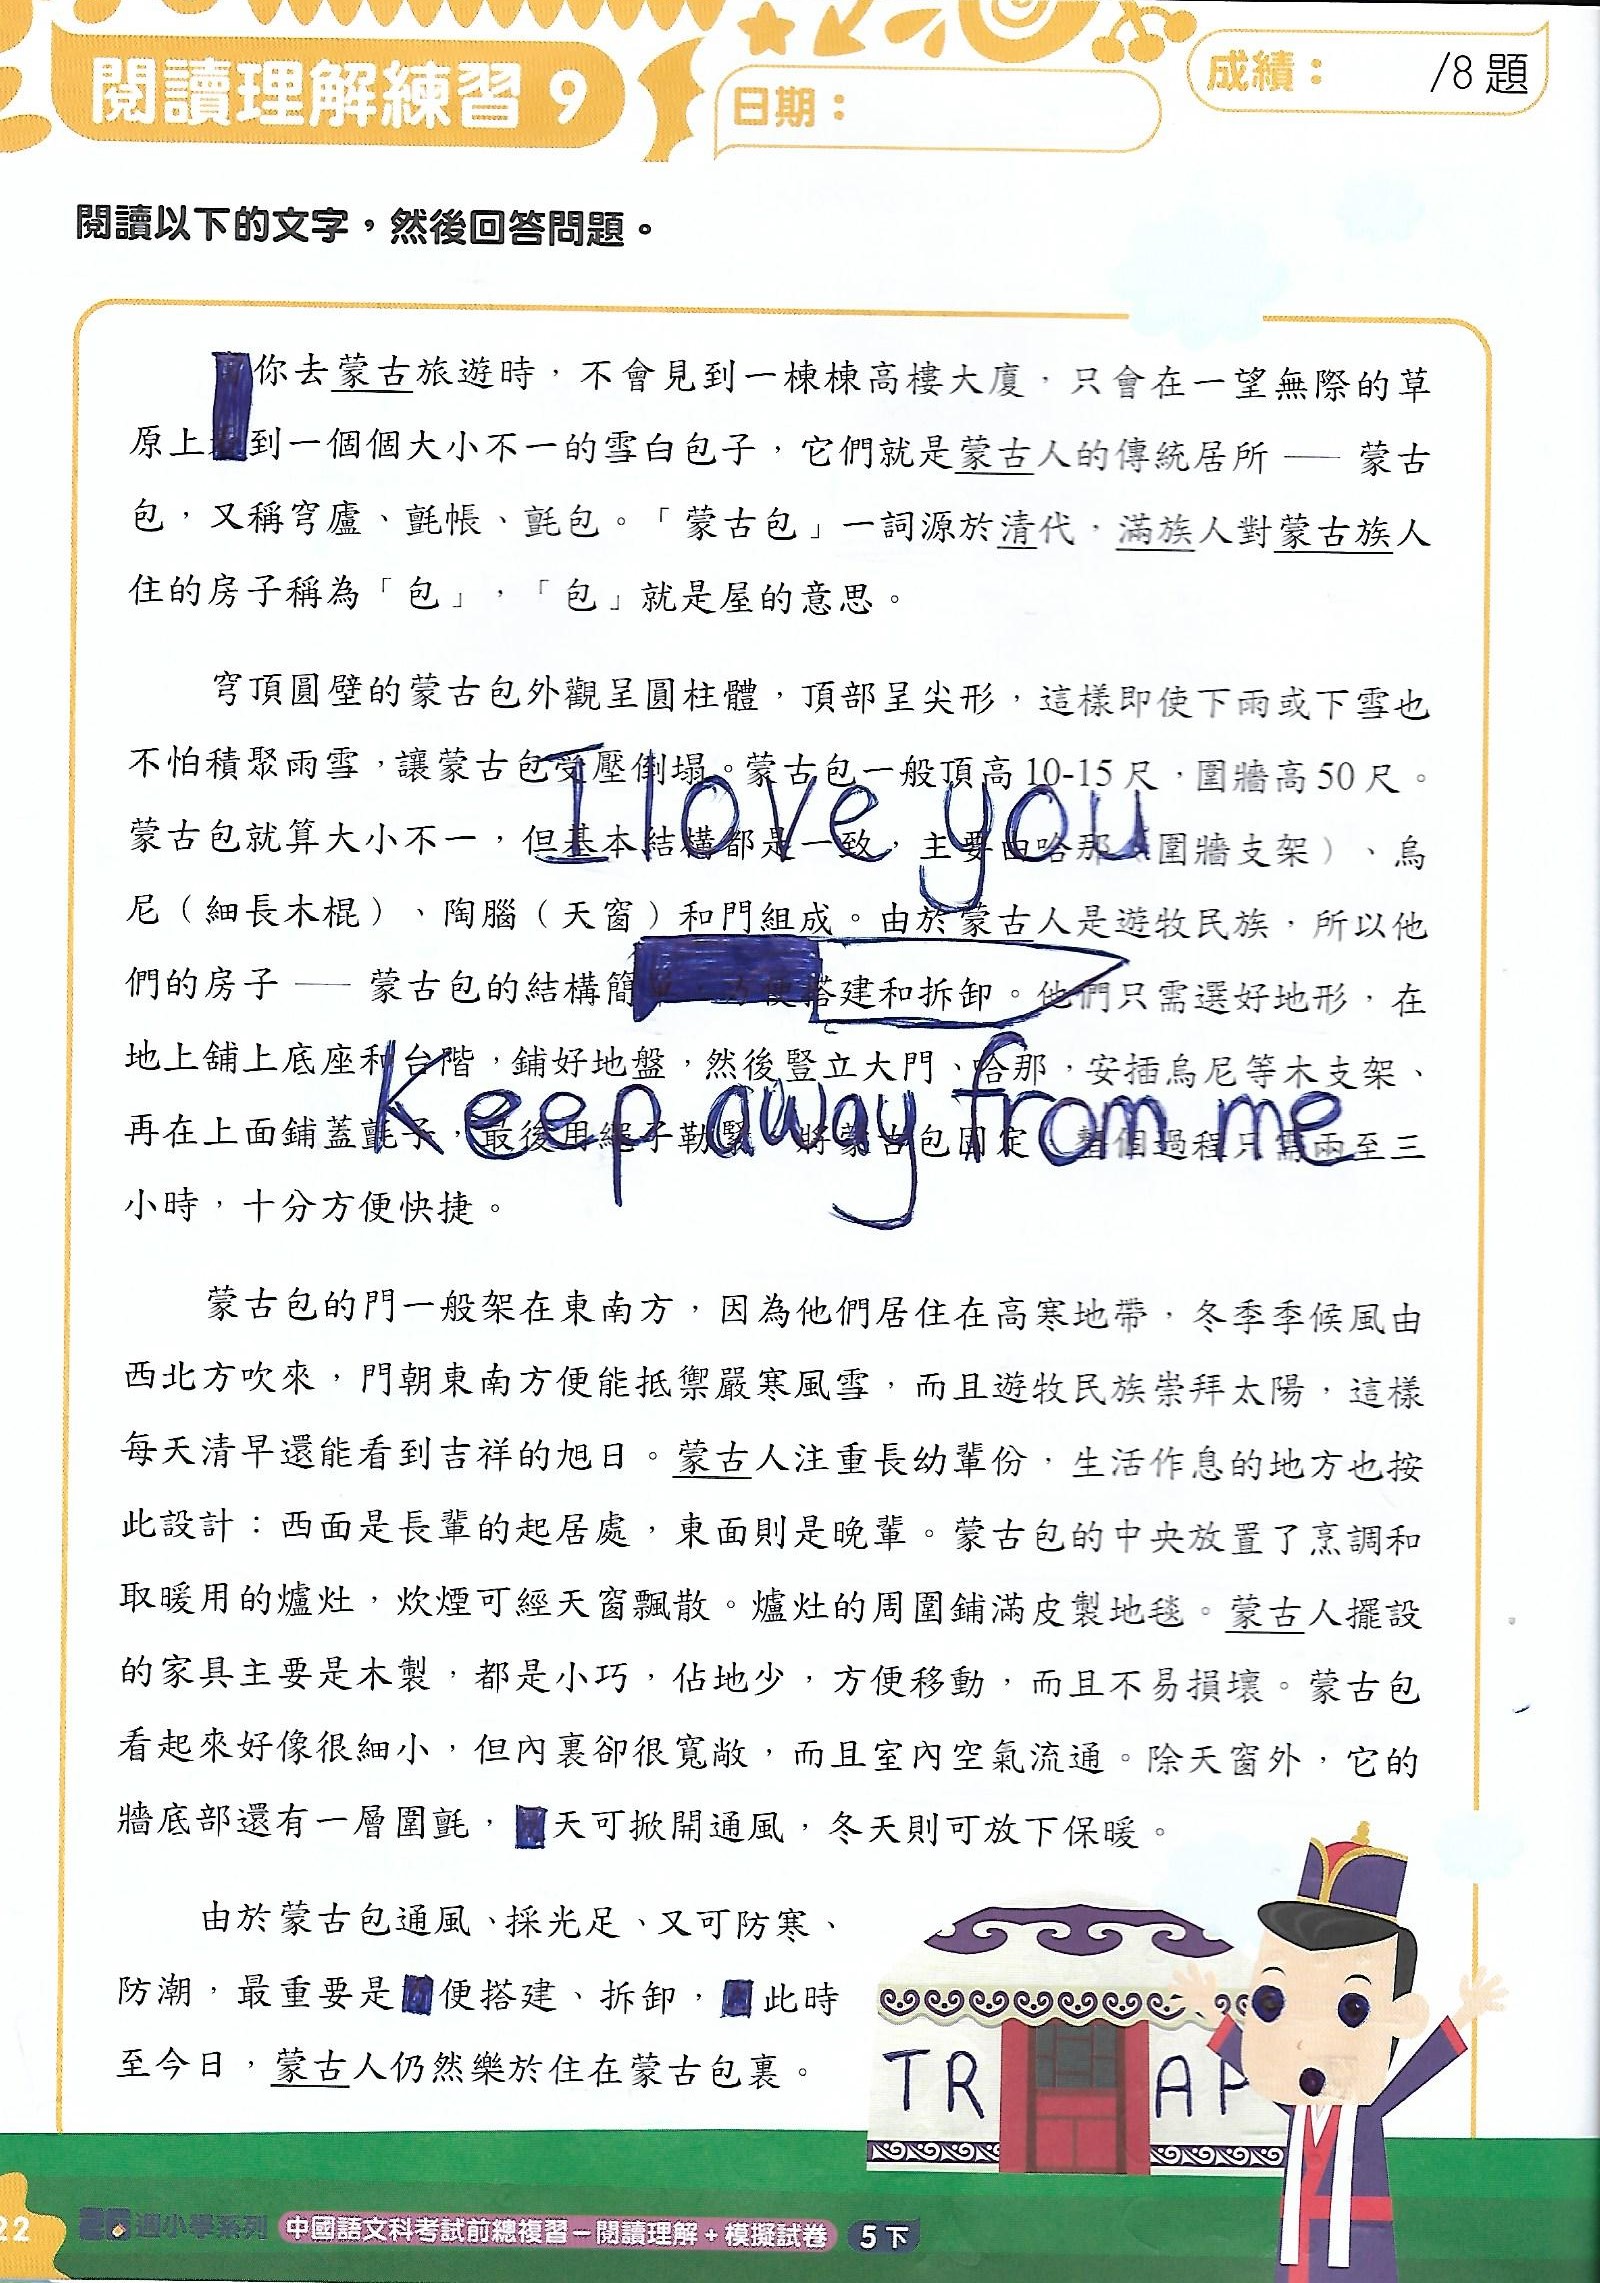 閱讀理解練習 9
日期：
成績： /8 題
閱讀以下的文字，然後回答問題。
你去蒙古旅遊時，不會見到一棟棟高樓大廈，只會在一望無際的草
原上到一個個大小不一的雪白包子，它們就是蒙古人的傳統居所 —— 蒙古
包，又稱穹廬、氈帳、氈包。「蒙古包」一詞源於清代，滿族人對蒙古族人
住的房子稱為「包」，「包」就是屋的意思。
穹頂圓壁的蒙古包外觀呈圓柱體，頂部呈尖形，這樣即使下雨或下雪也
不怕積聚雨雪，讓蒙古包受壓倒塌。蒙古包一般頂高 10-15 尺，圍牆高 50 尺。
I love you
蒙古包就算大小不一，但基本結構都是一致，主要由哈那（圍牆支架）、烏
尼（細長木棍）、陶腦（天窗）和門組成。由於蒙古人是遊牧民族，所以他
們的房子 —— 蒙古包的結構簡便搭建和拆卸。他們只需選好地形，在
地上舖上底座和台階，鋪好地盤，然後豎立大門、哈那，安插烏尼等木支架、
Keep away from me
再在上面鋪蓋氈子，最後用繩子勒緊，將蒙古包固定，整個過程只需兩至三
小時，十分方便快捷。
蒙古包的門一般架在東南方，因為他們居住在高寒地帶，冬季季候風由
西北方吹來，門朝東南方便能抵禦嚴寒風雪，而且遊牧民族崇拜太陽，這樣
每天清早還能看到吉祥的旭日。蒙古人注重長幼輩份，生活作息的地方也按
此設計：西面是長輩的起居處，東面則是晚輩。蒙古包的中央放置了烹調和
取暖用的爐灶，炊煙可經天窗飄散。爐灶的周圍鋪滿皮製地毯。蒙古人擺設
的家具主要是木製，都是小巧，佔地少，方便移動，而且不易損壞。蒙古包
看起來好像很細小，但內裏卻很寬敞，而且室內空氣流通。除天窗外，它的
牆底部還有一層圍氈，天可掀開通風，冬天則可放下保暖。
由於蒙古包通風、採光足、又可防寒、
防潮，最重要是便搭建、拆卸，此時
至今日，蒙古人仍然樂於住在蒙古包裏。
TR AP
22
週小學系列 中國語文科考試前總複習－閱讀理解＋模擬試卷 5 下